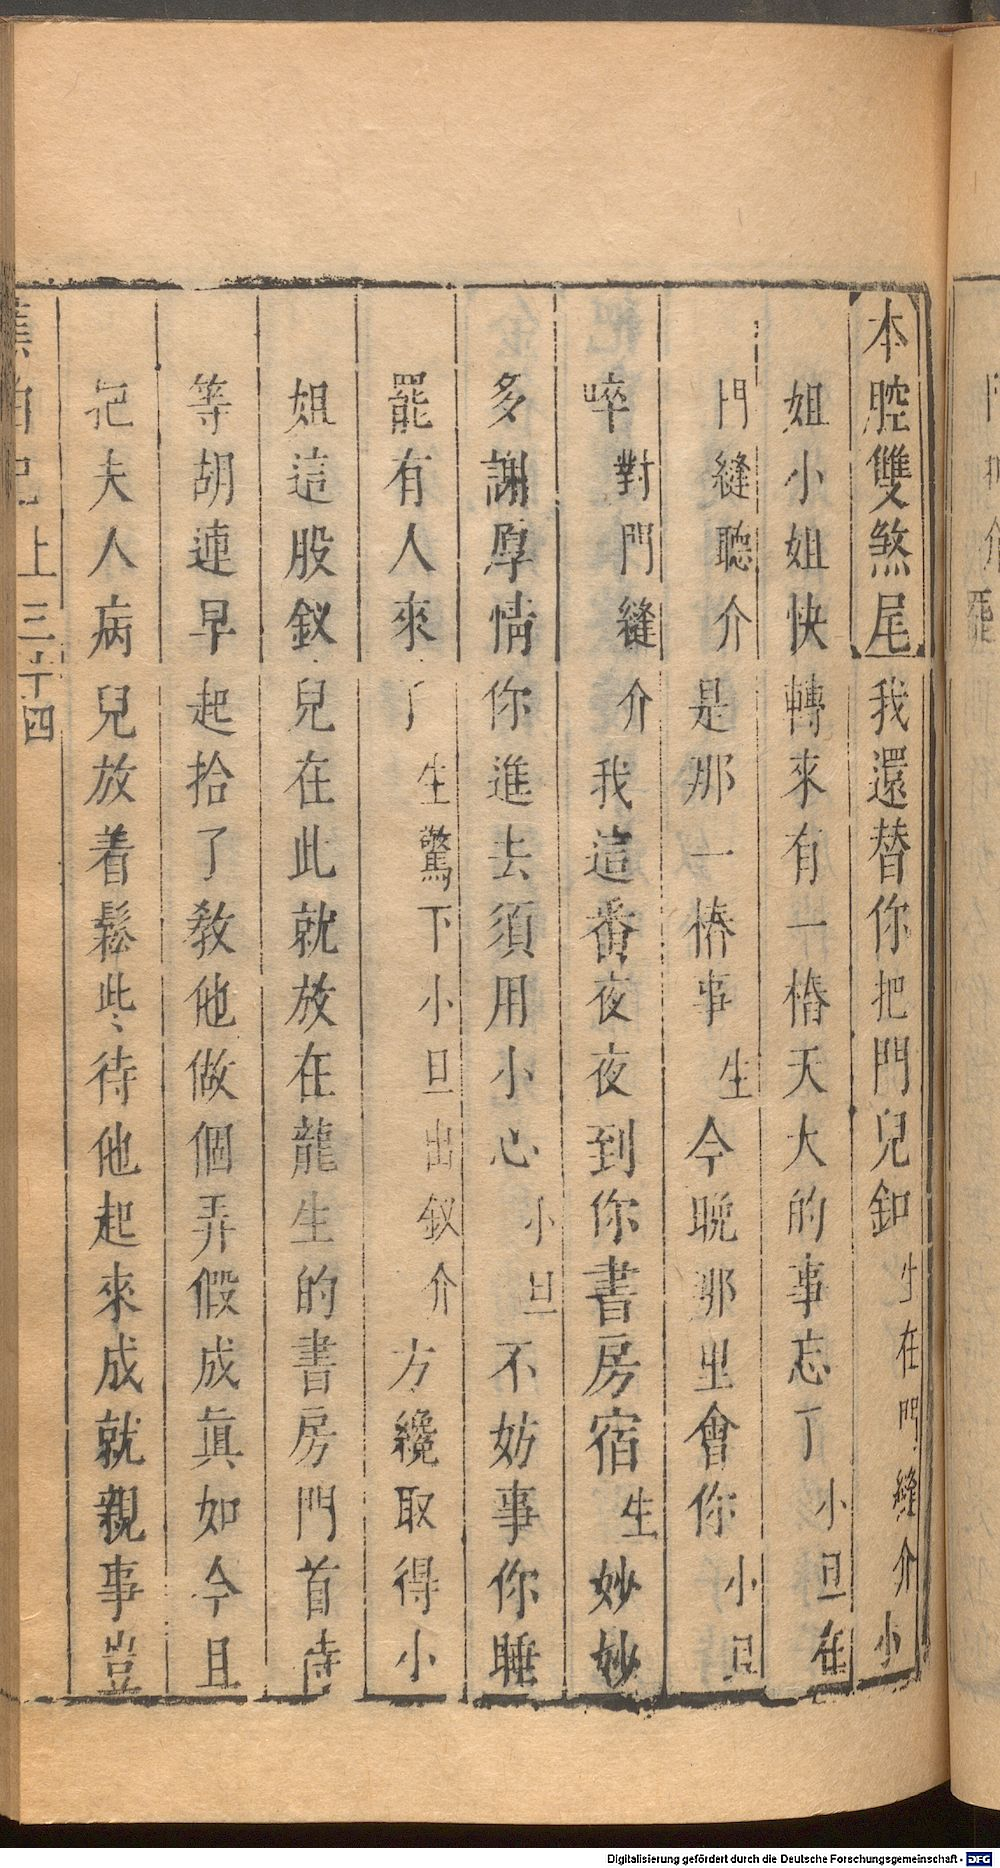 本腔雙煞尾我還替你把門兒釦生在門縫介小
姐小姐快轉來有一樁天大的事忘了小旦在
門縫聽介是那一樁事生今晚那里會你小旦
啐對門縫介我這番夜夜到你書房宿生妙妙
多謝厚情你進去須用小心小旦不妨事你睡
罷有人來了生驚下小旦出釵介方纔取得小
姐這股釵兒在此就放在龍生的書房門首待
等胡連早起拾了教他做個弄假成眞如今且
把夫人病兒放着鬆些待他起來成就親事豈
上三十四
Digitalisierung gefördert durch die Deutsche Forschungsgemeinschaft - DFG